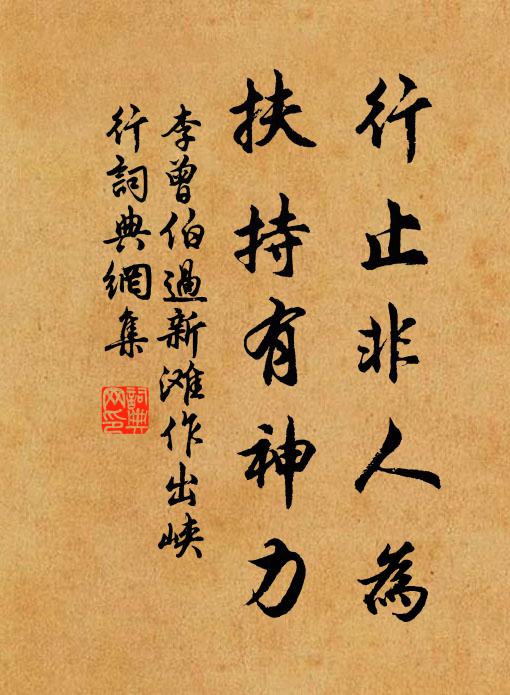 行止非人為
扶持有神力
李曾伯過新滩作出峽
行詞典網集
詞典
网印